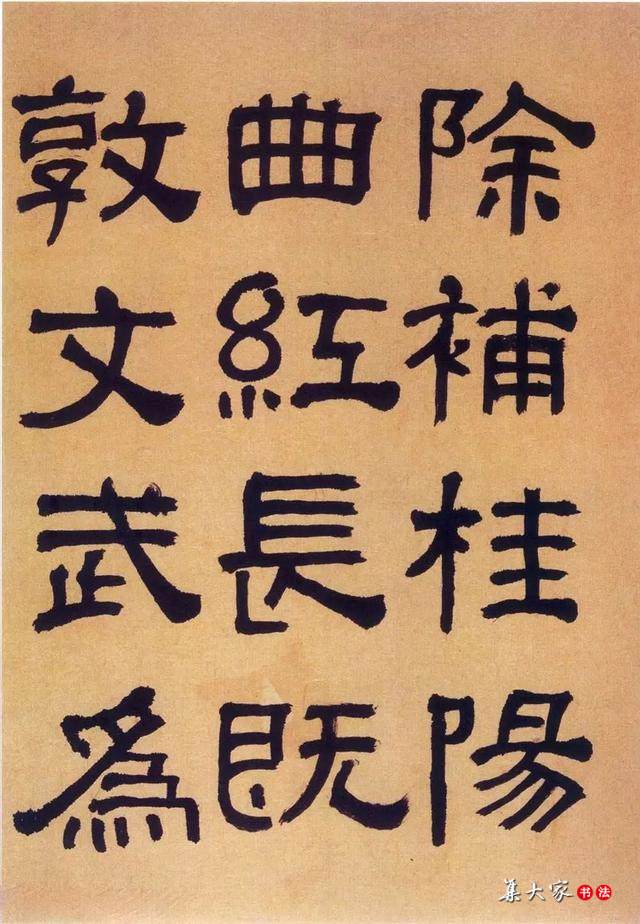 除補桂陽
曲紅長既
敦文武為
集大家書法